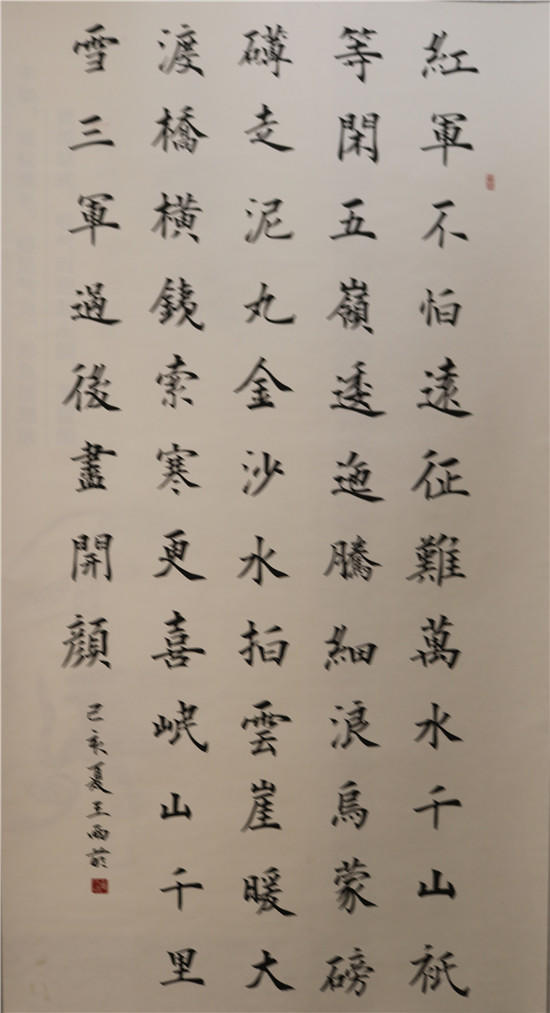 紅軍不怕遠征難萬水千山祇
等閑五嶺逶迤騰細浪烏蒙磅
礴走泥丸金沙水拍雲崖暖大
渡橋橫銕索寒更喜岷山千里
雪三軍過後盡開顏
己亥夏王雨